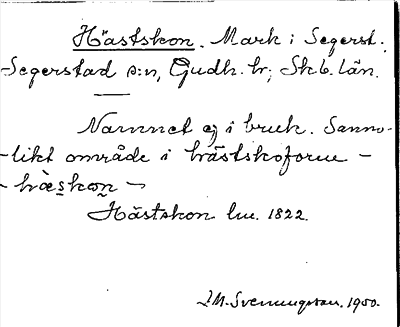 Hästskon. Mark i Segerst.
Segerstad s:n, Gudh. hr; Skb. län.
Namnet ej i bruk. Sanno-
likt område i hästskoform -
- hæskon -
Hästskon lm. 1822.
I.M. Svenungsson. 1950.